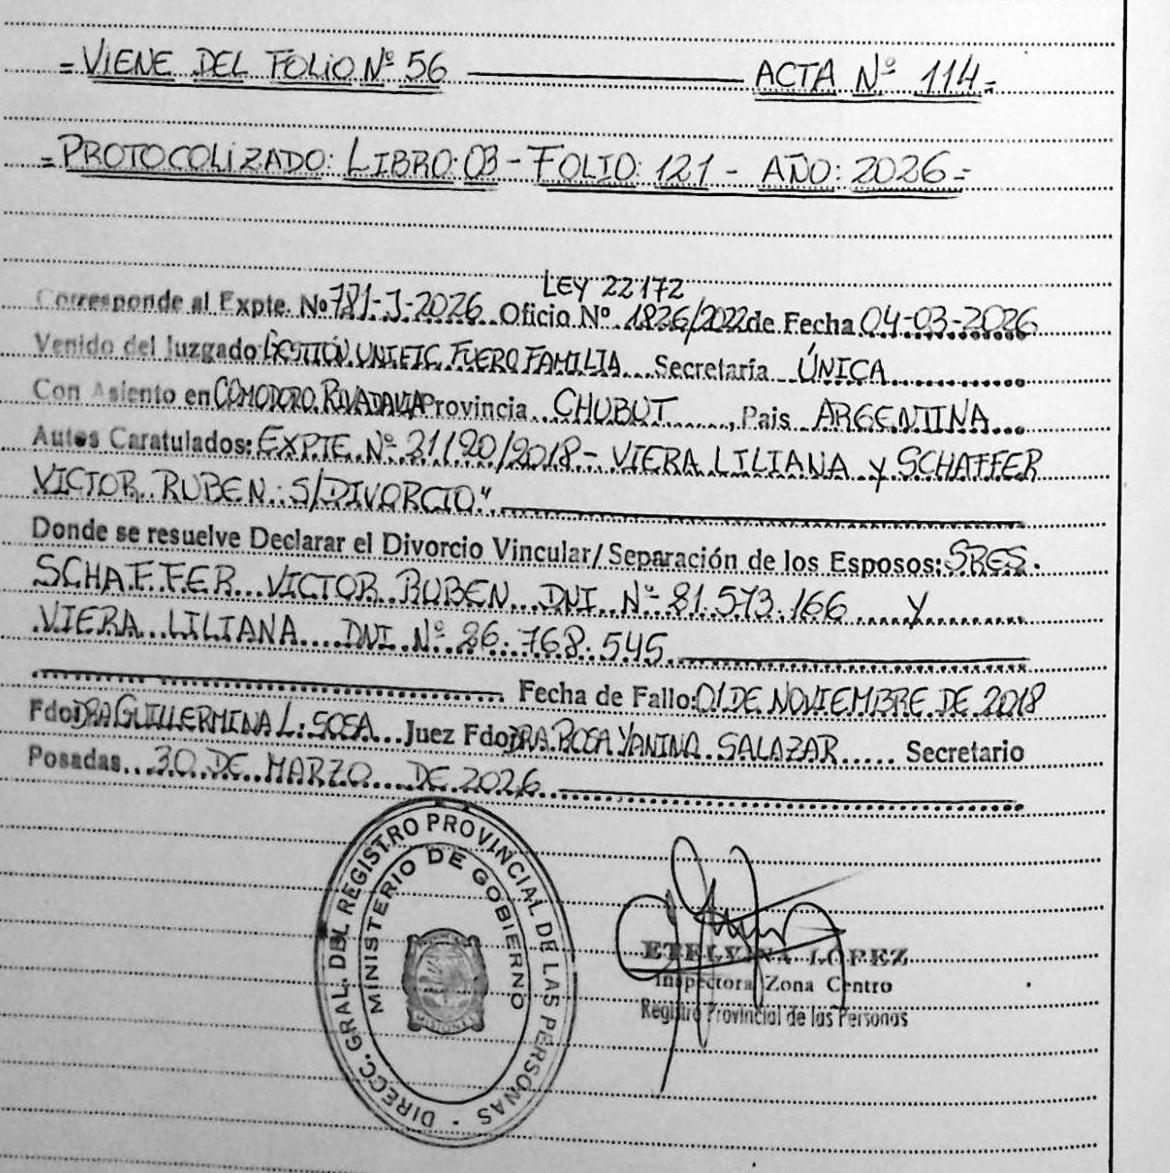 = VIENE DEL FOLIO Nº 56 ACTA Nº 114 =
= PROTOCOLIZADO: LIBRO: 03 - FOLIO: 121 - AÑO: 2026 =
LEY 22172
Corresponde al Expte. Nº 781-J-2026 Oficio Nº 1826/2022 de Fecha 04-03-2026
Venido del Juzgado GESTIÓN UNIFIC. FUERO FAMILIA Secretaria ÚNICA
Con Asiento en COMODORO RIVADAVIA Provincia CHUBUT, Pais ARGENTINA
Autos Caratulados: EXPTE. Nº /2018 - VIERA LILIANA Y SCHAFFER
VICTOR RUBEN S/DIVORCIO"
Donde se resuelve Declarar el Divorcio Vincular/ Separación de los Esposos: SRES.
SCHAFFER VICTOR RUBEN DNI Nº 21.573.166 Y
VIERA LILIANA DNI Nº 26.768.545
Fecha de Fallo: 01 DE NOVIEMBRE DE 2018
Fdo DRA GUILLERMINA L. SOSA Juez Fdo DRA. ROSA YANINA SALAZAR Secretario
Posadas 30 DE MARZO DE 2026
DIRECC. GRAL. DEL REGISTRO PROVINCIAL DE LAS PERSONAS
MINISTERIO DE GOBIERNO
MISIONES
ETELVINA LOPEZ
Inspectora Zona Centro
Registro Provincial de las Personas